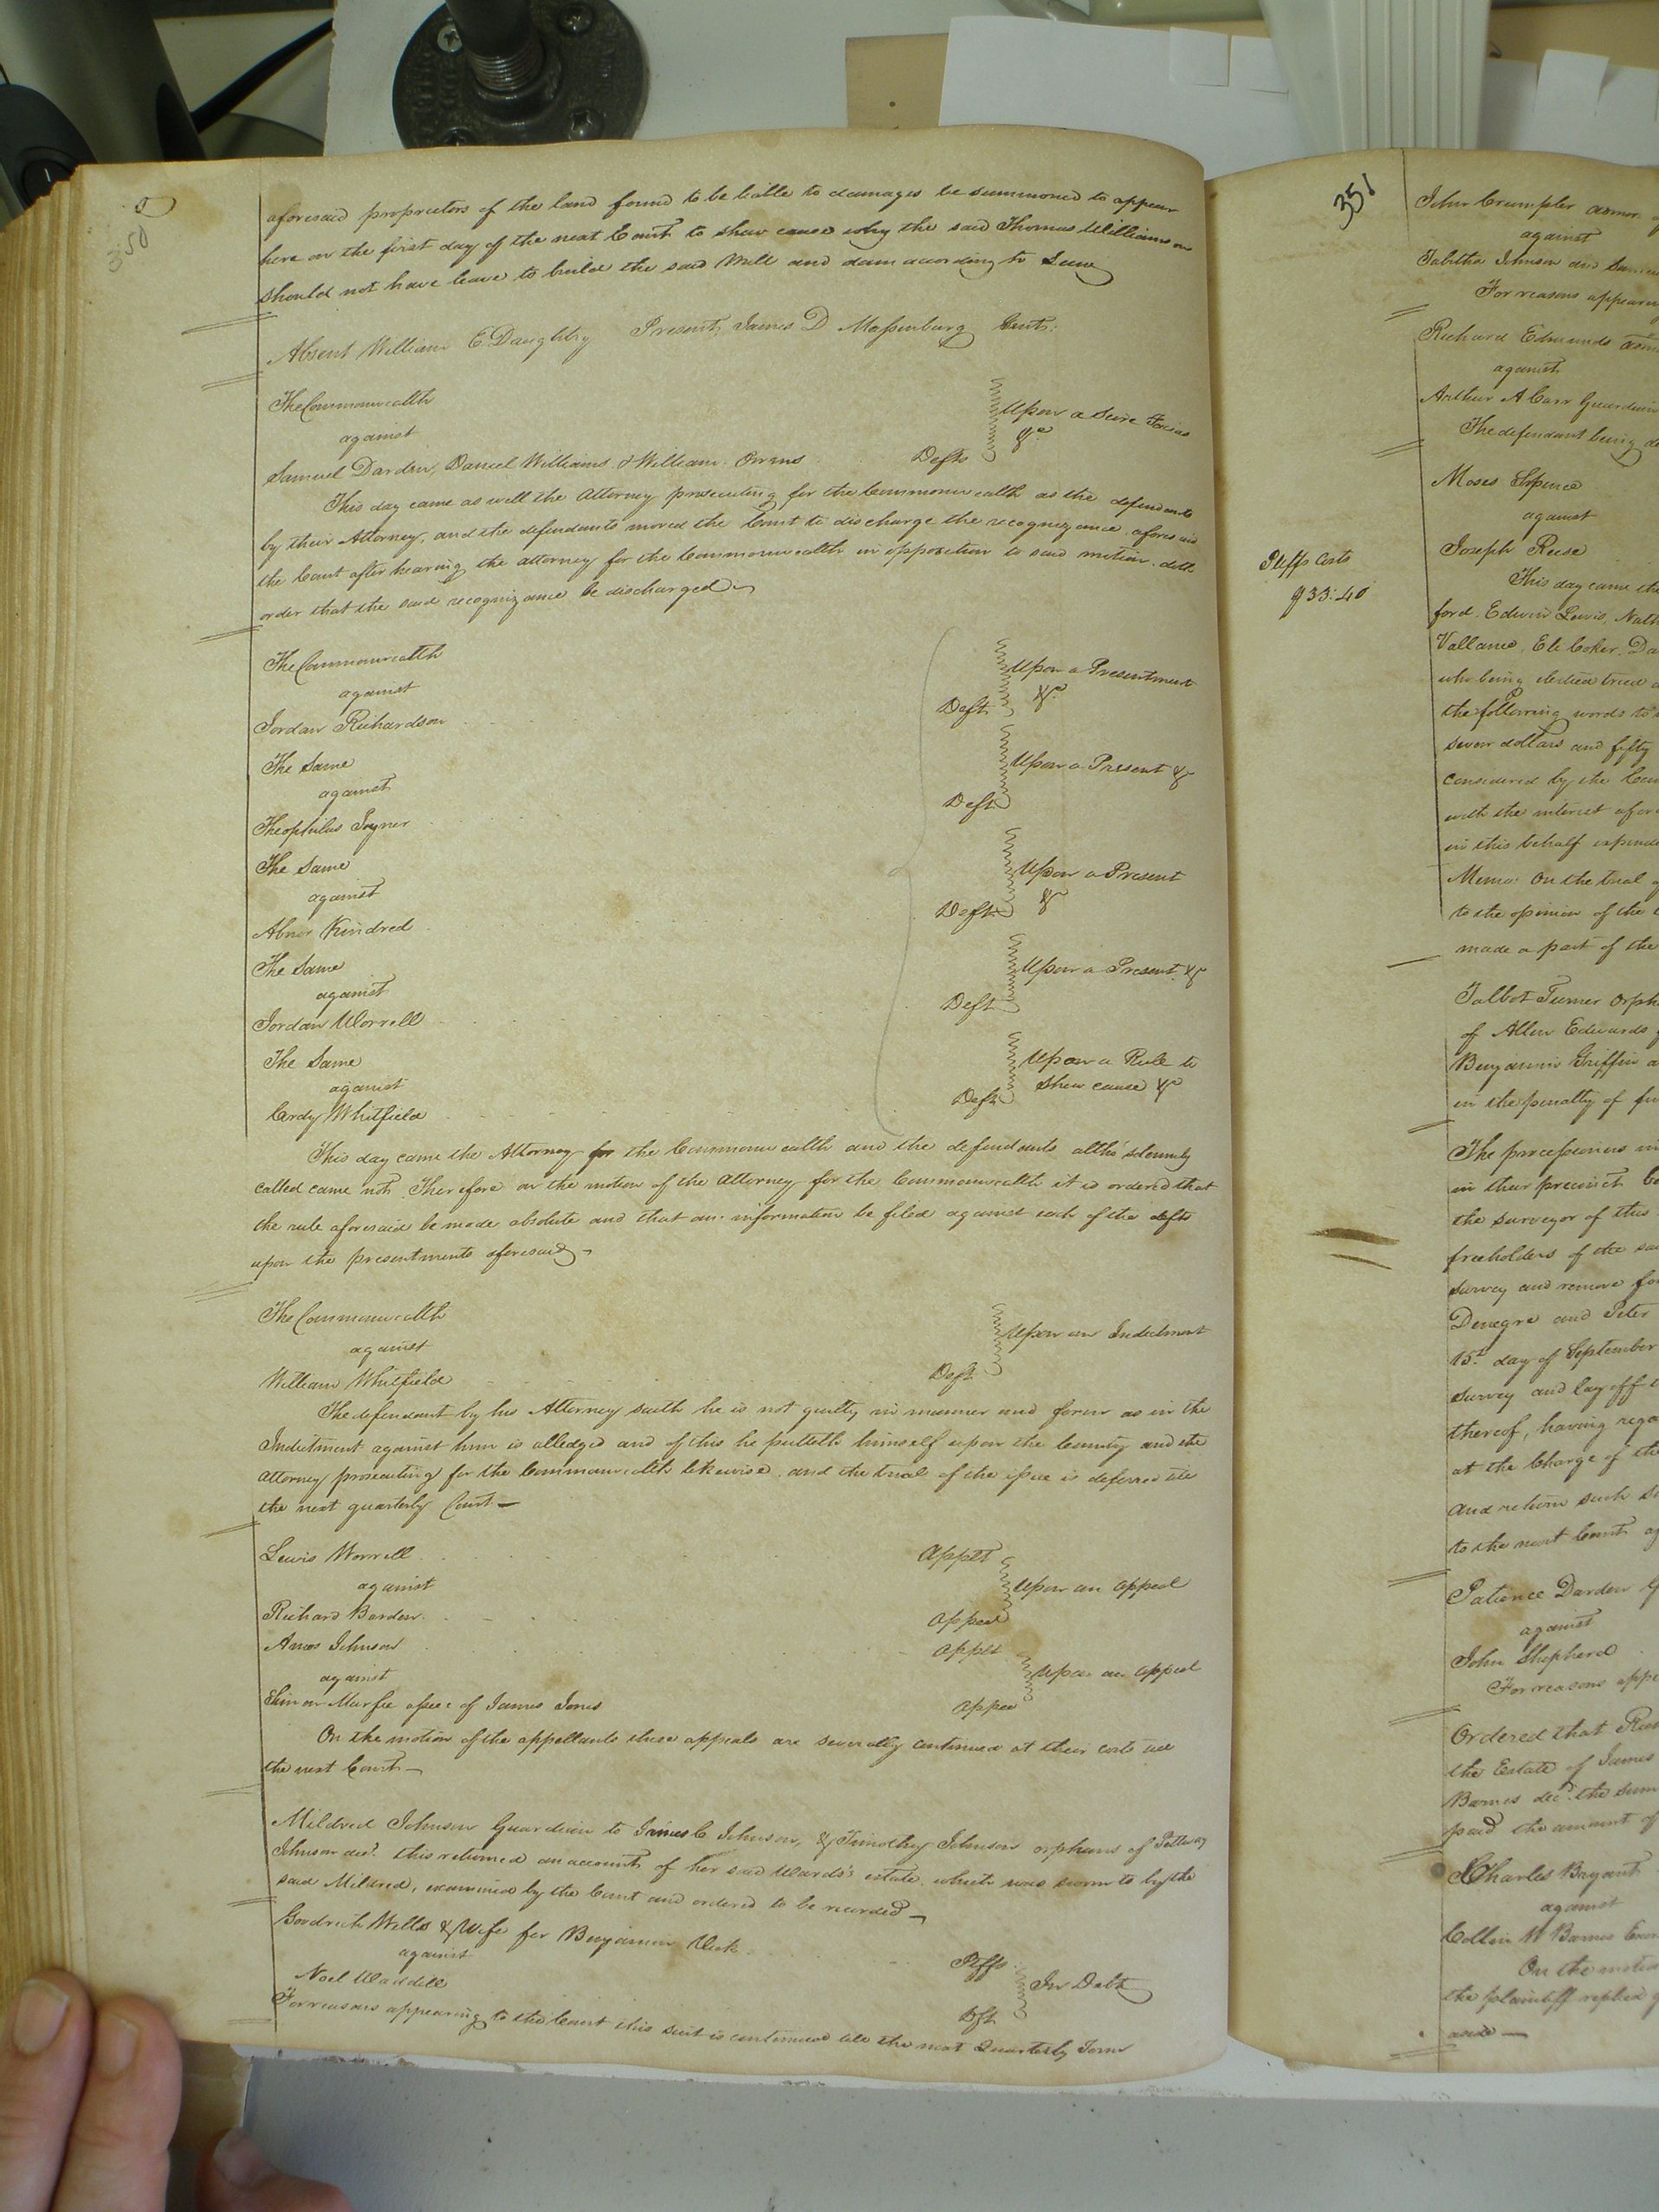 350
aforesaid proprietors of the land found to be liable to damages be summoned to appear
here on the first day of the next Court to shew cause why the said Thomas Williamson
should not have leave to build the said Mill and dam according to Law
Absent William E. Daughtry Present James D Massenburg Gent:
The Commonwealth
against
Samuel Darden, Daniel Williams & William Owens Defts
Upon a Scire Facias
&c
This day came as well the Attorney prosecuting for the Commonwealth as the defendants
by their Attorney, and the defendants moved the Court to discharge the recognizance aforesaid
the Court after hearing the attorney for the Commonwealth in opposition to said motion doth
order that the said recognizance be discharged
The Commonwealth
against
Jordan Richardson Deft
Upon a Presentment
&c
The Same
against
Theophilus Joyner Deft
Upon a Present &c
The Same
against
Abner Kindred Deft
Upon a Present
&c
The Same
against
Jordan Worrell Deft
Upon a Present. &c
The Same
against
Cordy Whitfield Deft
Upon a Rule to
shew cause &c
This day came the Attorney for the Commonwealth and the defendants altho' solemnly
called came not Therefore on the motion of the Attorney for the Commonwealth it is ordered that
the rule aforesaid be made absolute and that an information be filed against each of the defts
upon the presentments aforesaid
The Commonwealth
against
William Whitfield Deft
Upon an Indictment
The defendant by his Attorney saith he is not guilty in manner and form as in the
Indictment against him is alledged and of this he putteth himself upon the County and the
attorney prosecuting for the Commonwealth likewise, and the trial of the issue is deferred till
the next quarterly Court
Lewis Worrell Applt
against
Richard Barden Appee
Upon an appeal
Amos Johnson applt
against
Murfee assee of James Jones appee
Upon an appeal
On the motion of the appellants these appeals are severally continued at their costs till
the next Court
Mildred Johnson Guardian to James C Johnson, & Timothy Johnson orphans of
Johnson decd. this returned an account of her said Ward's estate, which was sworn to by the
said Mildred, examined by the Court and ordered to be recorded
Goodrich Wells & Wife for Benjamin Vick Plffs
against
Noel Waddell Dft
In Debt
For reasons appearing to the Court this suit is continued till the next Quarterly Term
351
Plffs Costs
$33:40
John Crumpler
against
Tabitha Johnson and
For reasons
Richard Edmunds
against
Arthur A Carr Guardian
The defendant being
Moses Spence
against
Joseph Reese
This day came
ford, Edwin Lewis,
Vallance, Eli Coker,
who being elected tried
the following words to
seven dollars and fifty
considered by the
with the interest
in this behalf
Memo: On the trial
to the opinion of the
made a part of the
Talbot Turner
of Allen Edwards
Benjamin Griffin
in the penalty of
The processioners
in their precinct
the surveyor of this
freeholders of the
survey and remove
Denegre and Peter
15th day of September
survey and lay off
thereof, having
at the Charge of the
and return such
to the next Court
Patience Darden
against
John Shepherd
For reasons
Ordered that
the Estate of James
Barnes decd. the sum
paid the amount of
Charles Bryant
against
Collin W Barnes
On the motion
the plaintiff replied
aside